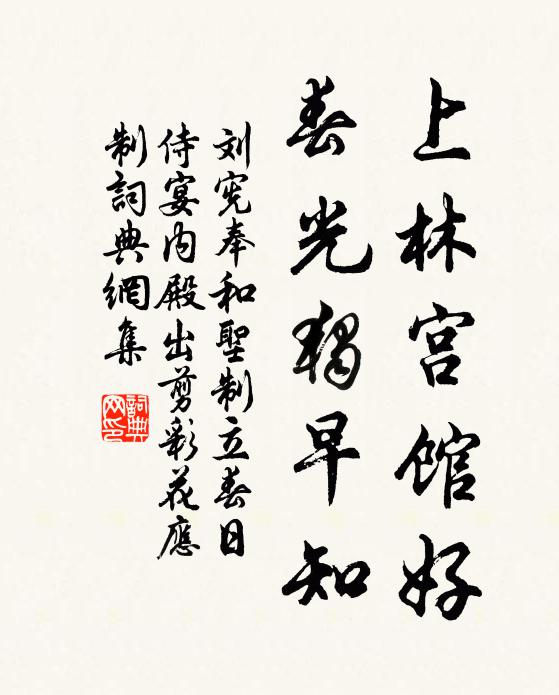 上林宫館好
春光獨早知
刘宪奉和聖制立春日
侍宴内殿出剪彩花應
制詞典網集
詞典
网印